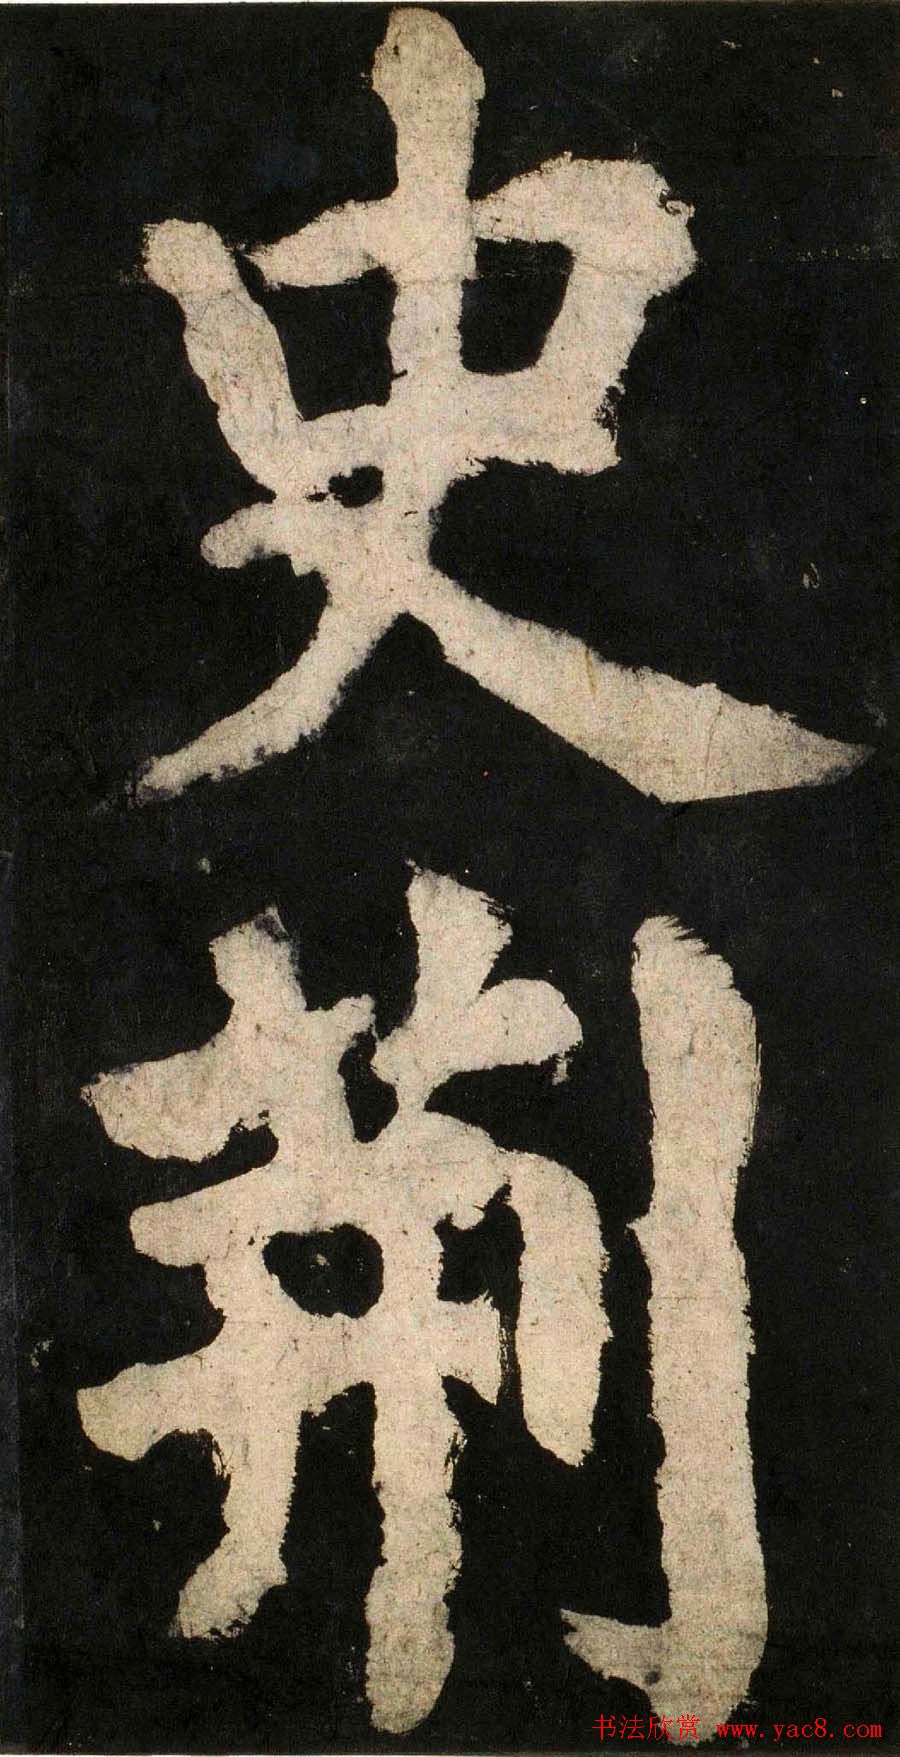 史
荆
书法欣赏 www.yac8.com